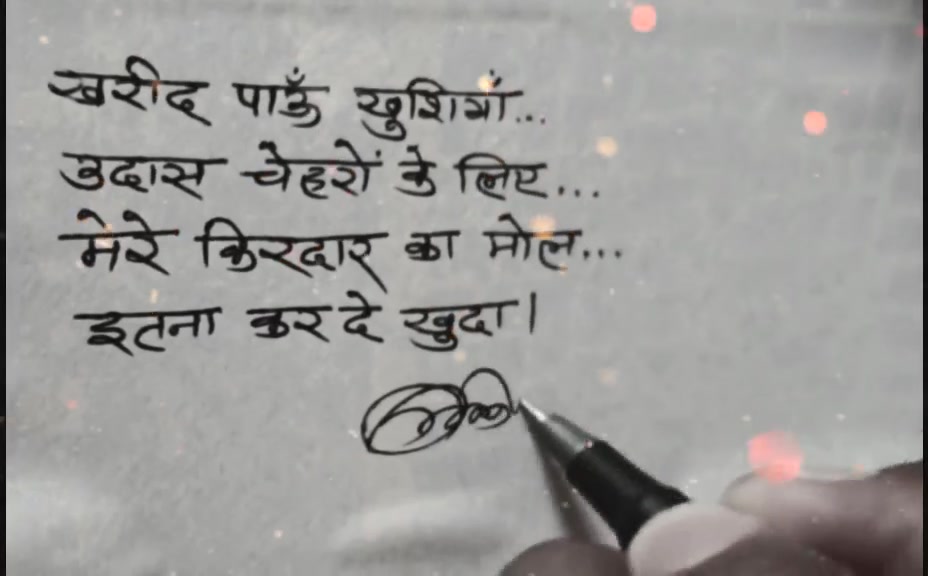 खरीद पाऊँ खुशियाँ...
उदास चेहरों के लिए...
मेरे किरदार का मोल...
इतना कर दे खुदा।